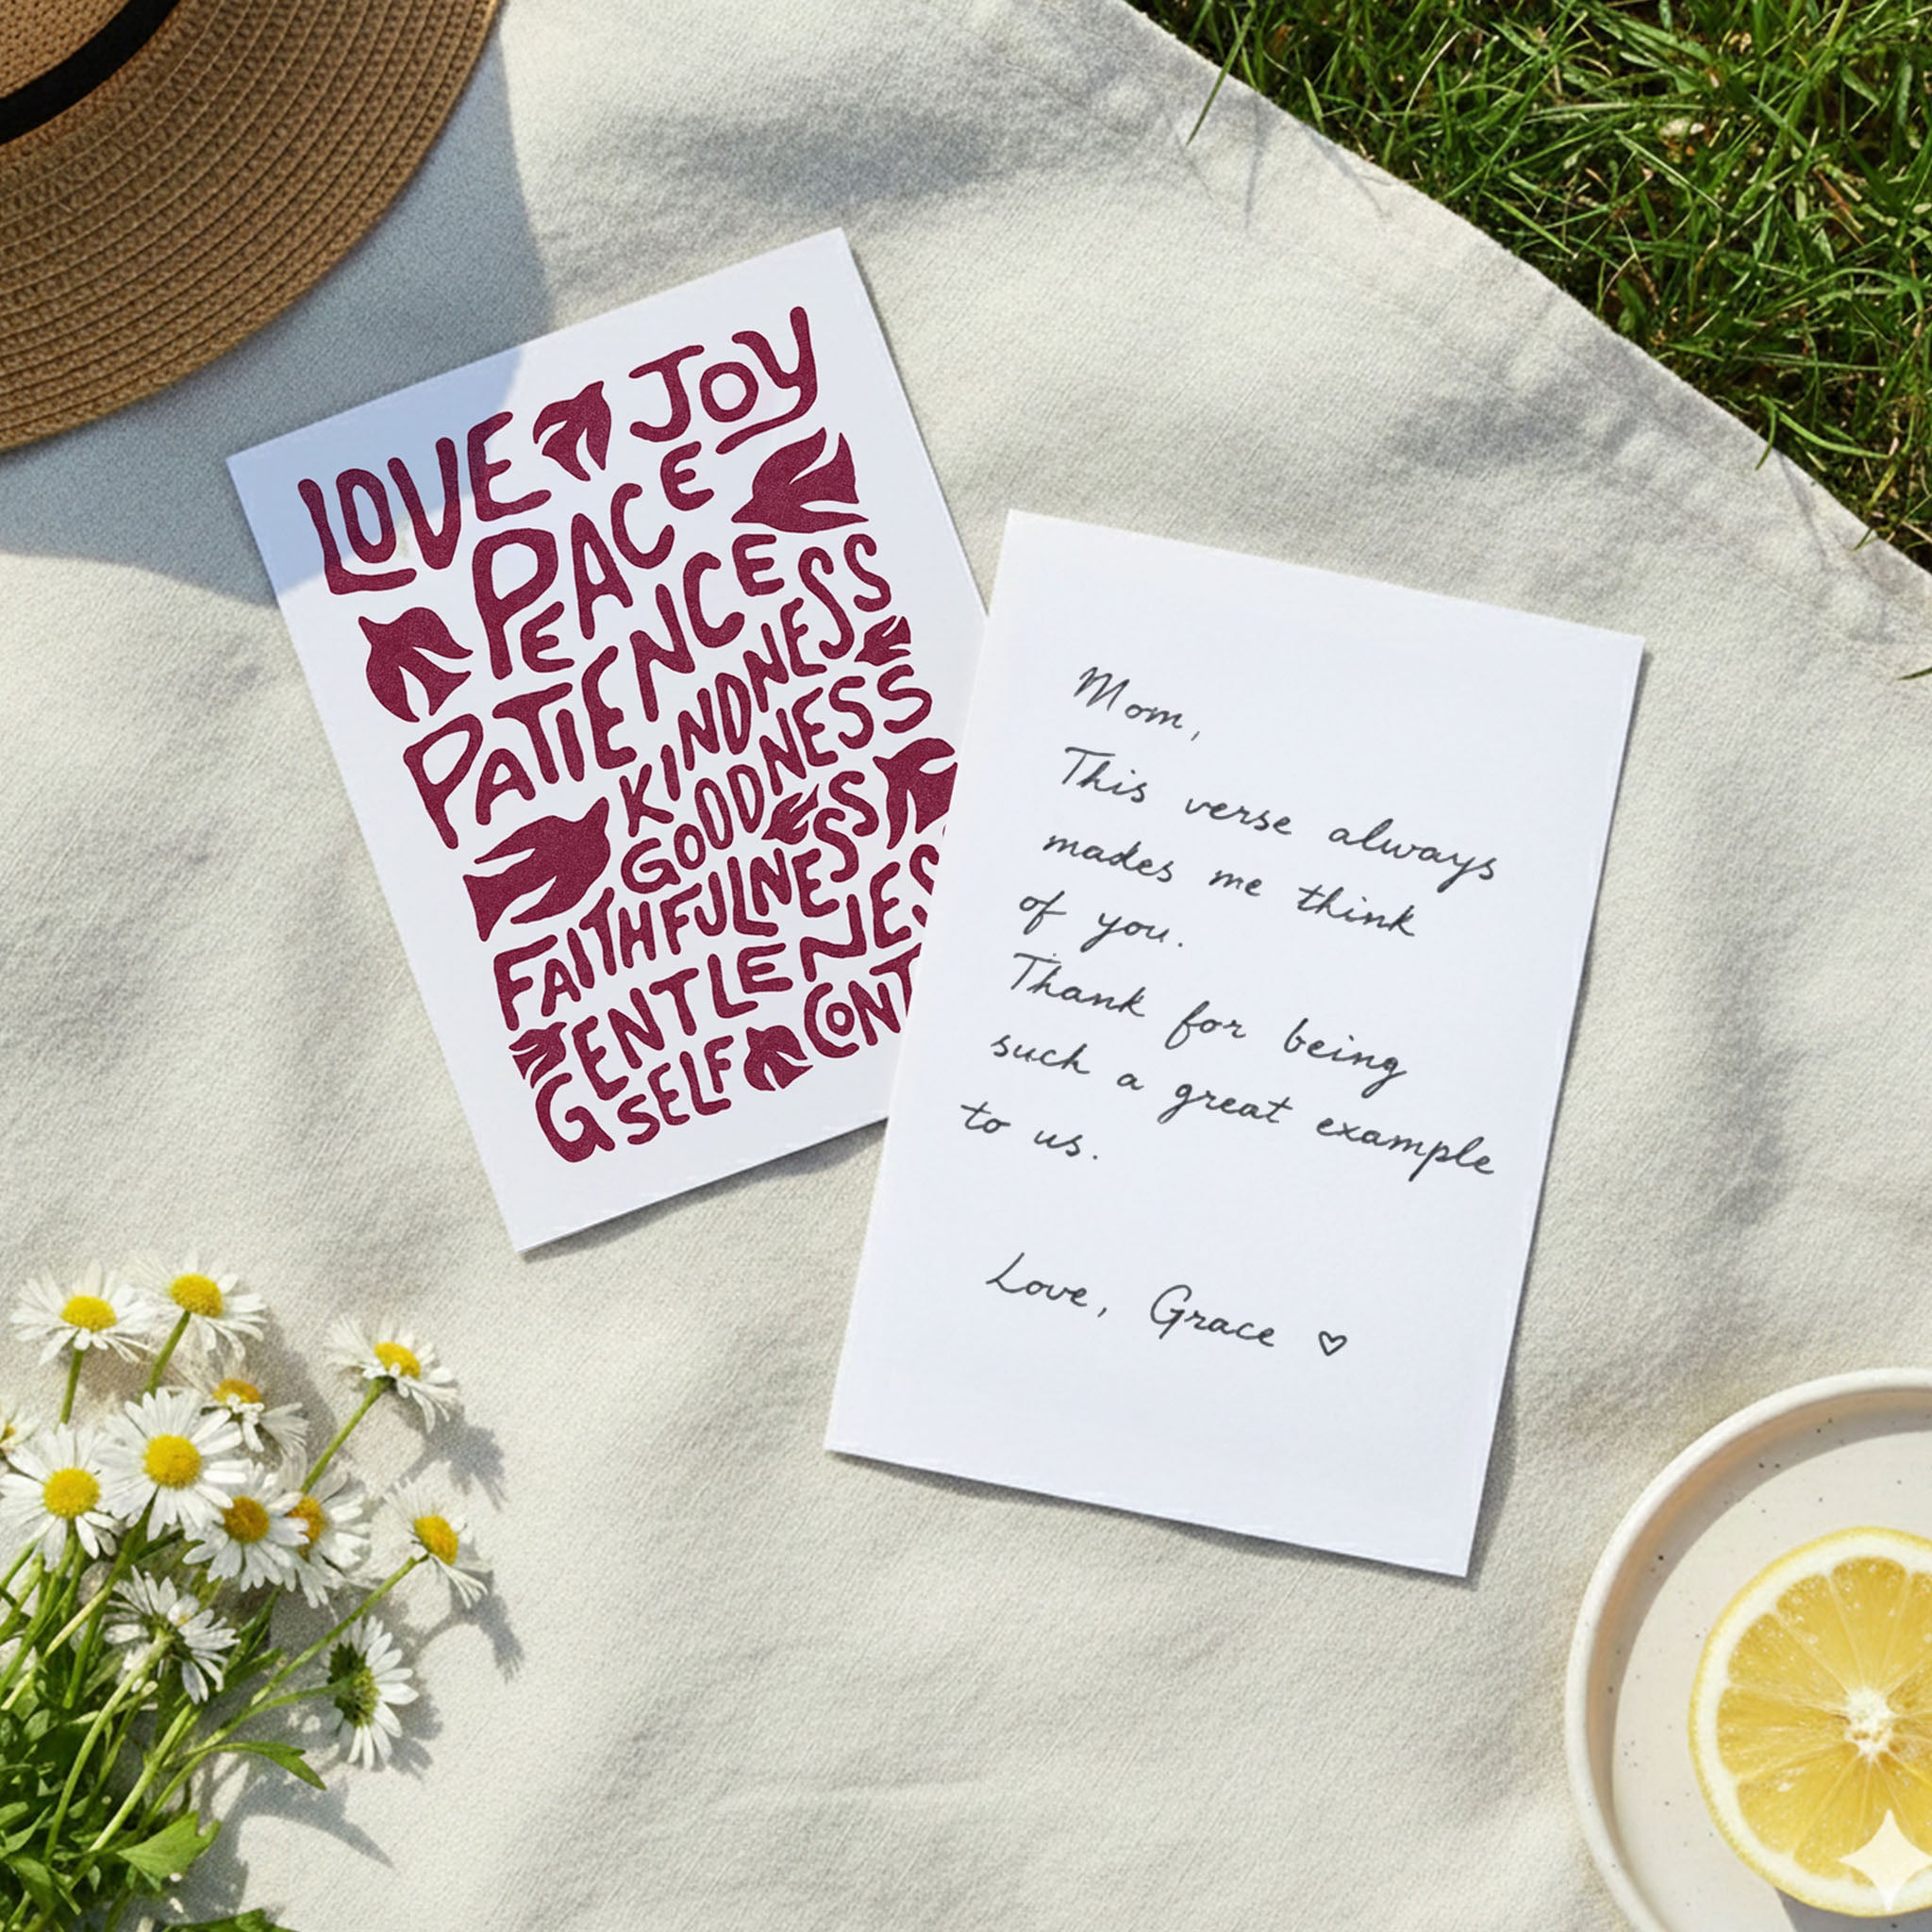 LOVE JOY
PEACE
PATIENCE
KINDNESS
GOODNESS
FAITHFULNESS
GENTLENES
SELF CONT
Mom,
This verse always
mades me think
of you.
Thank for being
such a great example
to us.
Love, Grace ♡